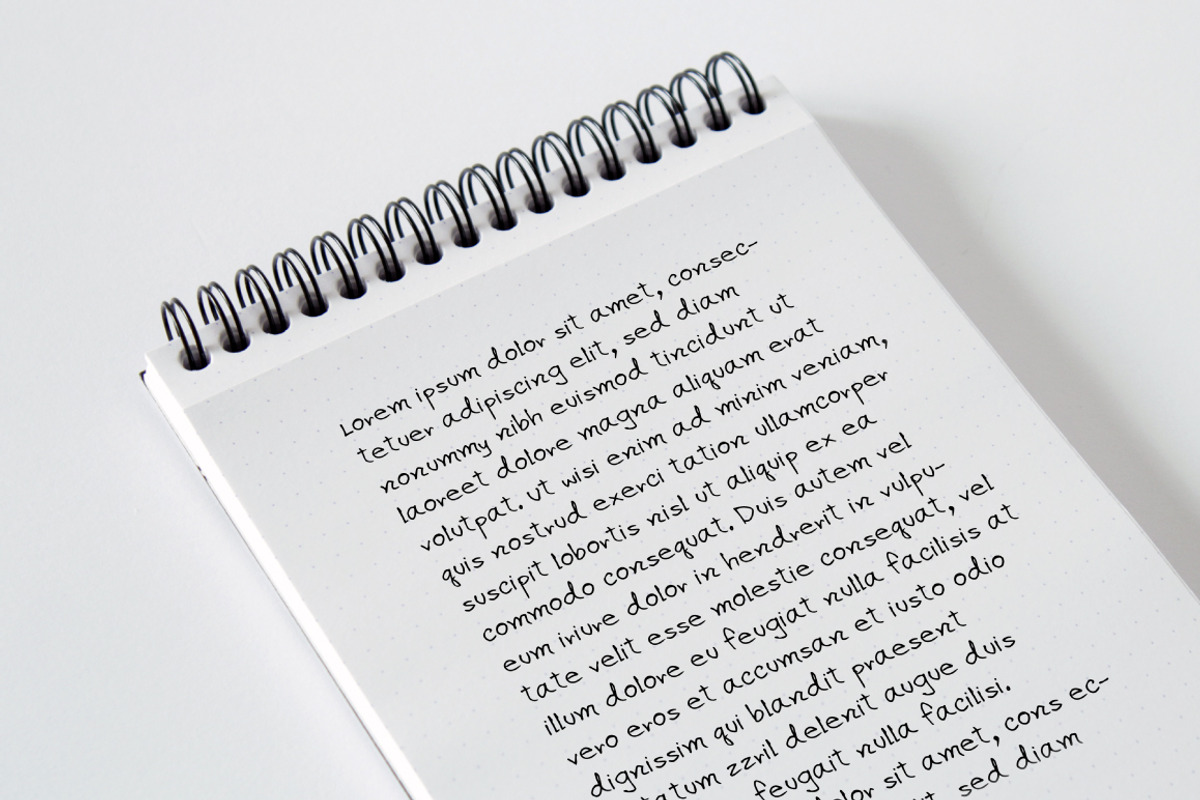 Lorem ipsum dolor sit amet, consec-
tetuer adipiscing elit, sed diam
nonummy nibh euismod tincidunt ut
laoreet dolore magna aliquam erat
volutpat. Ut wisi enim ad minim veniam,
quis nostrud exerci tation ullamcorper
suscipit lobortis nisl ut aliquip ex ea
commodo consequat. Duis autem vel
eum iriure dolor in hendrerit in vulpu-
tate velit esse molestie consequat, vel
illum dolore eu feugiat nulla facilisis at
vero eros et accumsan et iusto odio
dignissim qui blandit praesent
zzril delenit augue duis
feugait nulla facilisi.
sit amet, cons ec-
sed diam